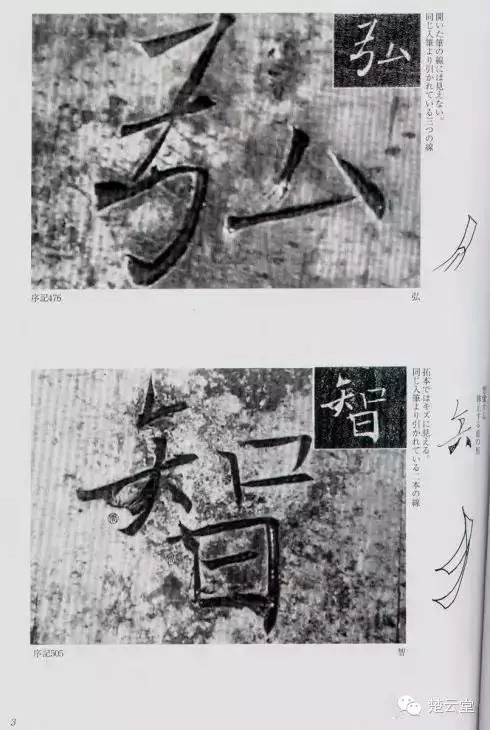 弘
弘
開いた筆の線には見えない。
同じ入筆より引かれている三つの線
序記476
弘
智
智
拓本ではキズに見える。
同じ入筆より引かれている二本の線
序記505
智
3
楚云堂